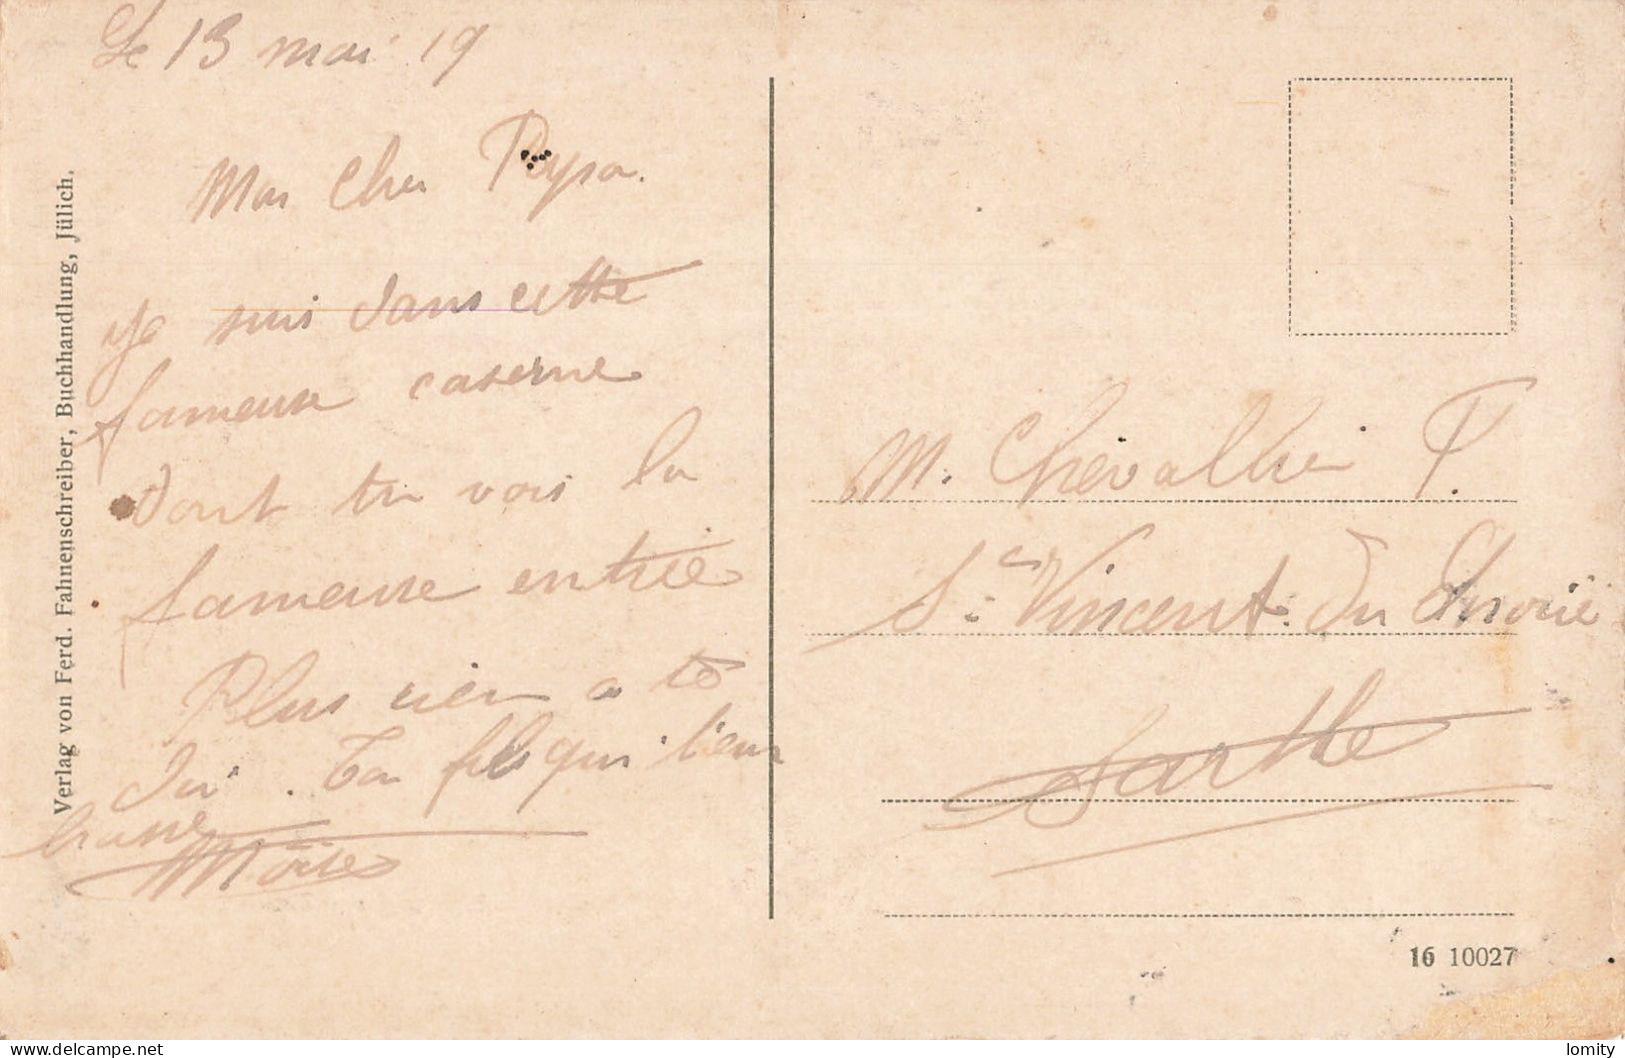 Le 13 mai 19
Mon Cher Papa.
Je suis dans cette
fameuse caserne
dont tu vois la
fameuse entrée
Plus rien a te
dir. Ton fils qui
Moïse
M. Chevallier P.
St Vincent. du Lorouër
Sarthe
Verlag von Ferd. Fahnenschreiber, Buchhandlung, Jülich.
16 10027
delcampe.net
lomity